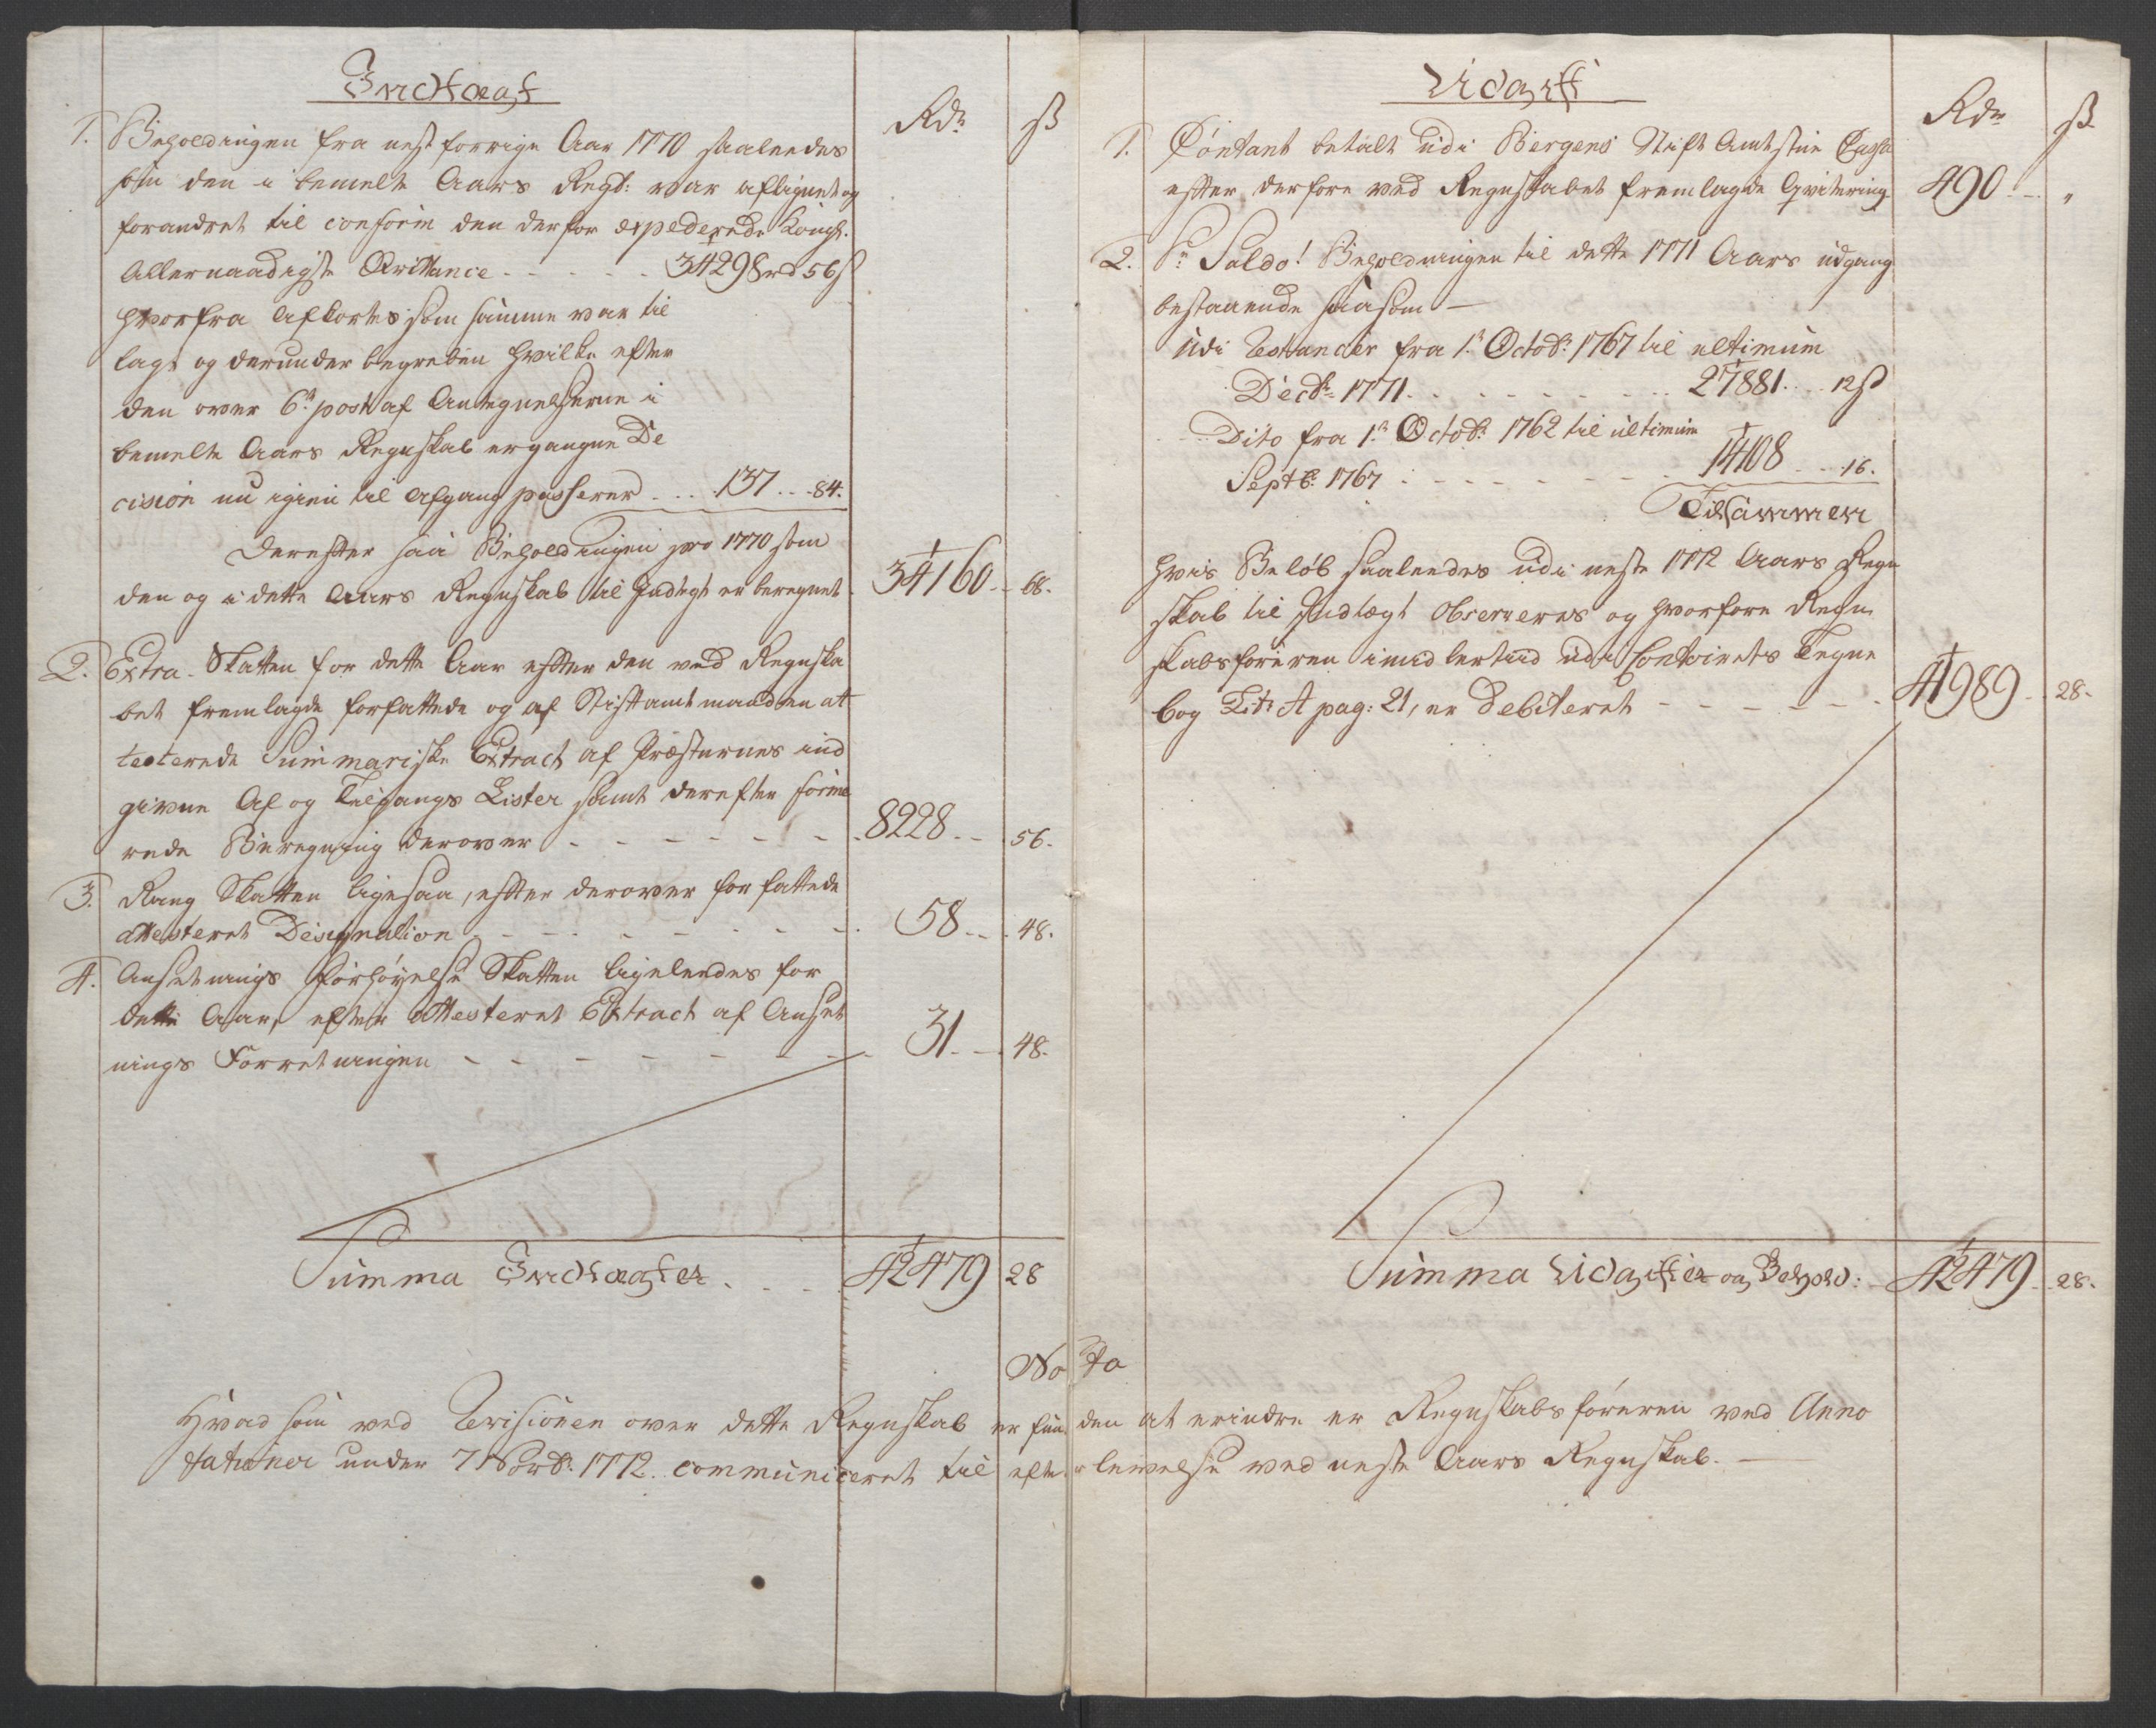 Indtægt
Rdr ß
1. Beholdningen fra nest forrige Aar 1770 saaledes
som den i bemelte Aars Regsk: var aflignet og
forandret til conform den derfor expederede Kongl.
Allernaadigste Qvittance - - - - - 34298 rd 56 ß
hvorfra afkortes som samme var til
lagt og derunder begreben hvilke efter
den over 6te post af Antegnelserne i
bemelte Aars Regnskab ergangne De
cision nu igien til afgang passerer - - - 137 - - 84.
Derefter saa Beholdningen pro 1770 som
den og i dette Aars Regnskab til Indtegt er beregnet 34160 - - 68.
2. Extra-Skatten for dette Aar efter den ved Regnska
bet fremlagde forfattede og af Stiftamtmanden at
testerede Summariske Extract af Præsternes ind
givne Af og Tilgangs Lister samt derefter forme
rede Beregning derover - - - - - - 8228 - - 56.
3. Rang Skatten ligesaa, efter derover forfattede
attesteret Designation - - - - - - 58 - - 48.
4. Ansetnings Forhöyelse Skatten ligeledes for
dette Aar, efter attesteret Extract af Anset
nings Forretningen - - - - - - - 31 - - 48.
Summa Indtægter - - - 42479 28
Udgift
Rdr ß
1. Contant betalt udi Bergens Stift Amtstue Cassa
efter derfore ved Regnskabet fremlagde Qvitering 490 - - "
2. Pr Saldo! Beholdningen til dette 1711 Aars udgang
bestaaende saasom -
Udi Restancer fra 1te Octobr 1767 til ultimum
Decbr 1771 - - - - - - - 27881 - - 12 ß
Dito fra 1te Octobr 1762 til ultimum
Septbr 1767 - - - - - - - 14108 - - 16.
Tilsammen
hvis Beløb saaledes udi neste 1772 Aars Regn
skab til Indtægt observeres og hvorfore Regn
skabsføreren imidlertiid udi Contoirets Tegne
bog Litr A pag: 21, er Debiteret - - - - - - 41989 - - 28.
Summa Udgifter og Behold: 42479 - - 28.
Nota
Hvad som ved Revisionen over dette Regnskab er funden at erindre er Regnskabsføreren ved Anno
tationer under 7 Novbr 1772. communiceret til efterlevelse ved neste Aars Regnskab. -